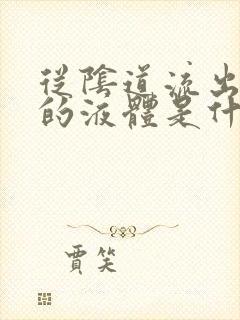 從陰道流出
的液體是什
賈笑